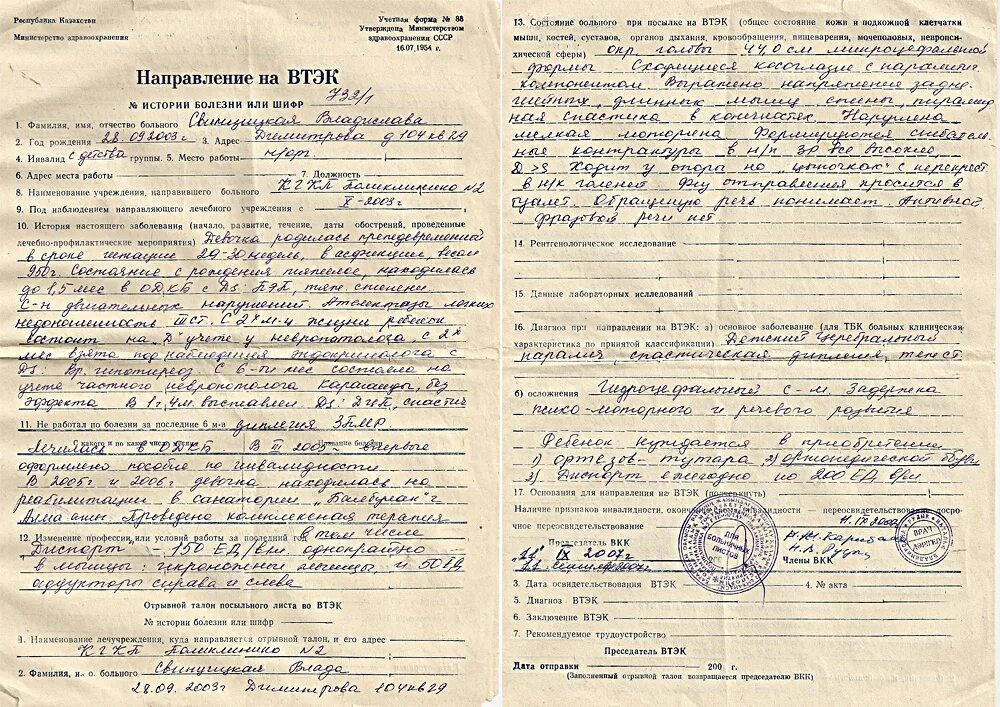 Республика Казахстан
Министерство здравоохранения
Учетная форма № 88
Утверждена Министерством
здравоохранения СССР
16.07.1954 г.
Направление на ВТЭК
№ ИСТОРИИ БОЛЕЗНИ ИЛИ ШИФР 732/1
1. Фамилия, имя, отчество больного Свиницицкая Владислава
2. Год рождения 28.09.2003г 3. Адрес Димитрова д 104кв 29
4. Инвалид с детства группы. 5. Место работы н/орг.
6. Адрес места работы 7. Должность
8. Наименование учреждения, направившего больного КГКП Поликлиника №2
9. Под наблюдением направляющего лечебного учреждения с X-2003г
10. История настоящего заболевания (начало, развитие, течение, даты обострений, проведенные
лечебно-профилактические мероприятия) Девочка родилась преждевременно
в сроке гистации 29-30 недель, в асфиксии, весом
950г. Состояние с рождения тяжелое, находилась
до 1,5 мес в ОДКБ с Ds: ПЭП, тяж. степени.
С-м двигательных нарушений. Ателектазы легких
недоношенность III ст. С 2х м-ц жизни ребенок
состоит на "Д" учете у невропатолога, с 2х
мес взята под наблюдения эндокринолога с
Ds: Вр. гипотиреоз. С 6-ти мес состояла на
учете частного невропотолога Караганды, без
эффекта В 1г,4м. выставлен Ds: ДЦП, спастич
11. Не работал по болезни за последние 6 м-в диплегия ЗПМР
С какого и по какое число месяца Название болезни
Лечилась в ОДКБ В III 2005г впервые
оформлено пособие по инвалидности
В 2005г и 2006г девочка находилась на
реабилитации в санатории "Балбулак" г
Алматы. Проведено комплексная терапия
12. Изменение профессии или условий работы за последний год в том числе
Диспорт - 150 ЕД/вм. однократно
в мышцы: икроножные мышцы и 50 ЕД
аддукторы справа и слева
Отрывной талон посыльного листа во ВТЭК
№ истории болезни или шифр
1. Наименование лечучреждения, куда направляется отрывной талон, и его адрес
КГКП Поликлиника №2
2. Фамилия, и., о. больного Свиницицкая Влада
28.09.2003г Димитрова 104кв29
13. Состояние больного при посылке на ВТЭК (общее состояние кожи и подкожной клетчатки
мышц, костей, суставов, органов дыхания, кровообращения, пищеварения, мочеполовых, невропси-
хической сферы) окр. головы 44,0 см микроцефальной
формы Сходящееся косоглазие с паралит.
компонентом Выражено напряжение задне-
шейных, длинных мышц спины, пирамид
ная спастика в конечностях. Нарушена
мелкая моторика Формируются сгибатель-
ные контрактуры в н/к
D>S Ходит у опоры на "цыпочках" с перекрест
в н/к голеней. Физ отправления просится в
туалет. Обращенную речь понимает. Активной
фразовой речи нет
14. Рентгенологическое исследование
15. Данные лабораторных исследований
16. Диагноз при направлении на ВТЭК: а) основное заболевание (для ТБК больных клиническая
характеристика по принятой классификации) Детский церебральный
паралич, спастическая диплегия, тяж ст
б) осложнения Гидроцефальный с-м. Задержка
психо-моторного и речевого развития
Ребенок нуждается в приобретении
1) ортезов-тутора 2) ортопедической обуви
3) Диспорт ежегодно по 200 ЕД в/м
17. Основания для направления на ВТЭК (подчеркнуть)
Наличие признаков инвалидности, окончание срока инвалидности — переосвидетельствование, досроч-
ное переосвидетельствование
Председатель ВКК
IX 2007г
Члены ВКК
ДЛЯ БОЛЬНИЧНЫХ ЛИСТОВ
ВРАЧ
3. Дата освидетельствования ВТЭК 4. № акта
5. Диагноз ВТЭК
6. Заключение ВТЭК
7. Рекомендуемое трудоустройство
Преседатель ВТЭК
Дата отправки 200 г.
(Заполненный отрывной талон возвращается председателю ВКК)